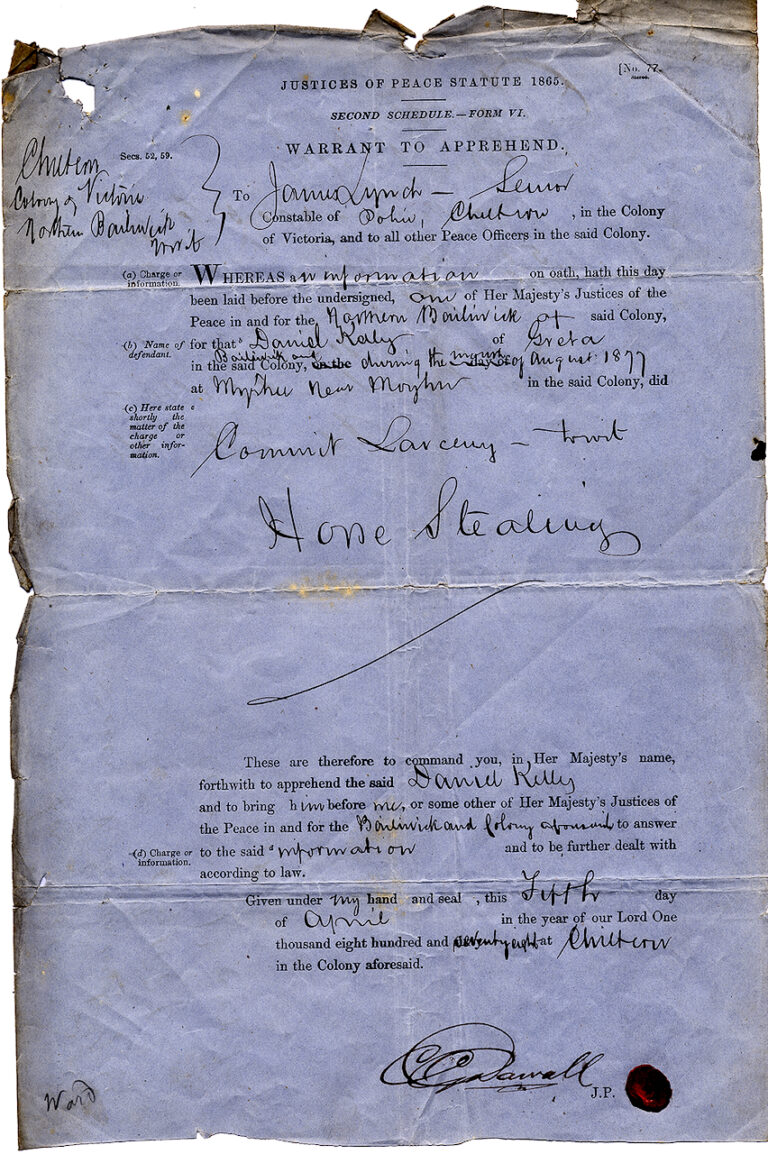 [No. 77.
JUSTICES OF PEACE STATUTE 1865.
SECOND SCHEDULE.—FORM VI.
WARRANT TO APPREHEND.
Chiltern
Secs. 52, 59.
Colony of Victoria
Northern Bailiwick
To James Lynch — Senior
Constable of Police, Chiltern , in the Colony
of Victoria, and to all other Peace Officers in the said Colony.
(a) Charge or information.
WHEREAS an information on oath, hath this day
been laid before the undersigned, one of Her Majesty's Justices of the
Peace in and for the Northern Bailiwick of said Colony,
(b) Name of defendant.
for that b Daniel Kelly of Greta
in the said Colony, Bailiwick and in the during the month day of of August 1877
at near in the said Colony, did
(c) Here state shortly the matter of the charge or other information.
c
Commit Larceny — towit
Horse Stealing
These are therefore to command you, in Her Majesty's name,
forthwith to apprehend the said Daniel Kelly
and to bring him before me, or some other of Her Majesty's Justices of
the Peace in and for the Bailiwick and Colony aforesaid to answer
(d) Charge or information.
to the said d information and to be further dealt with
according to law.
Given under my hand and seal , this Fifth day
of April in the year of our Lord One
thousand eight hundred and seventy eight at Chiltern
in the Colony aforesaid.
J.P.
Ward